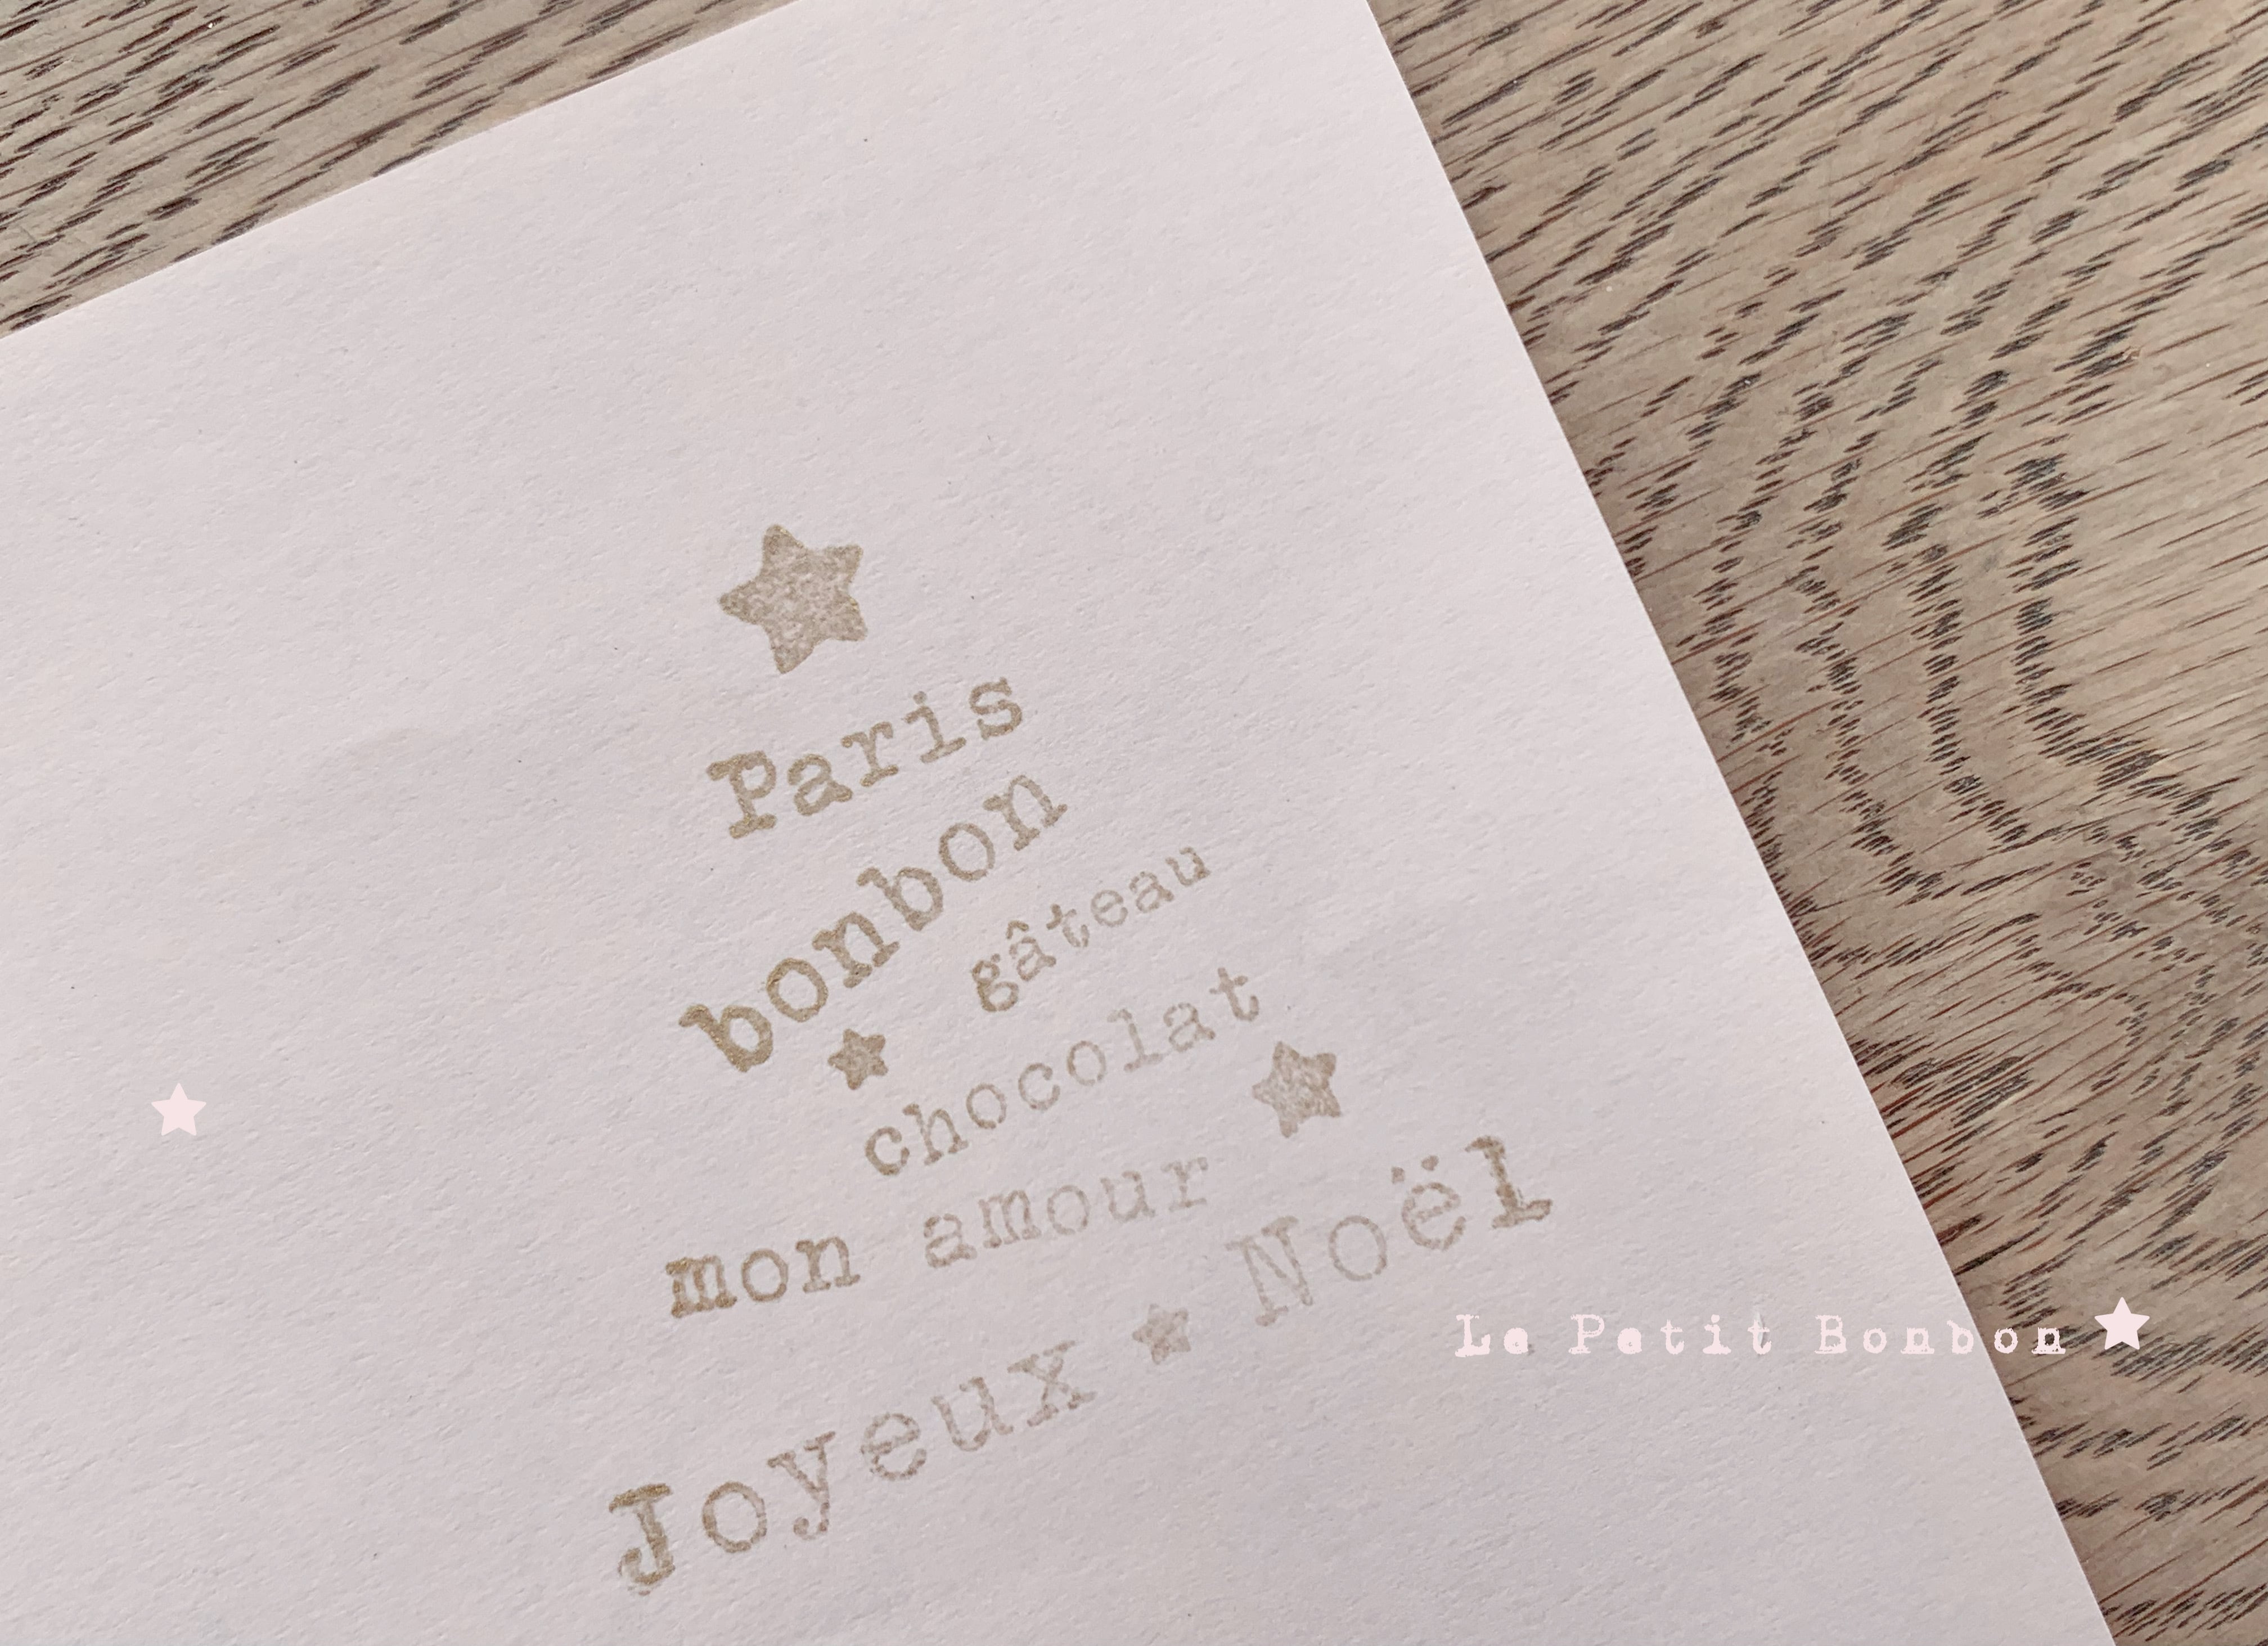 Paris
bonbon
gâteau
chocolat
mon amour
Joyeux Noël
Le Petit Bonbon